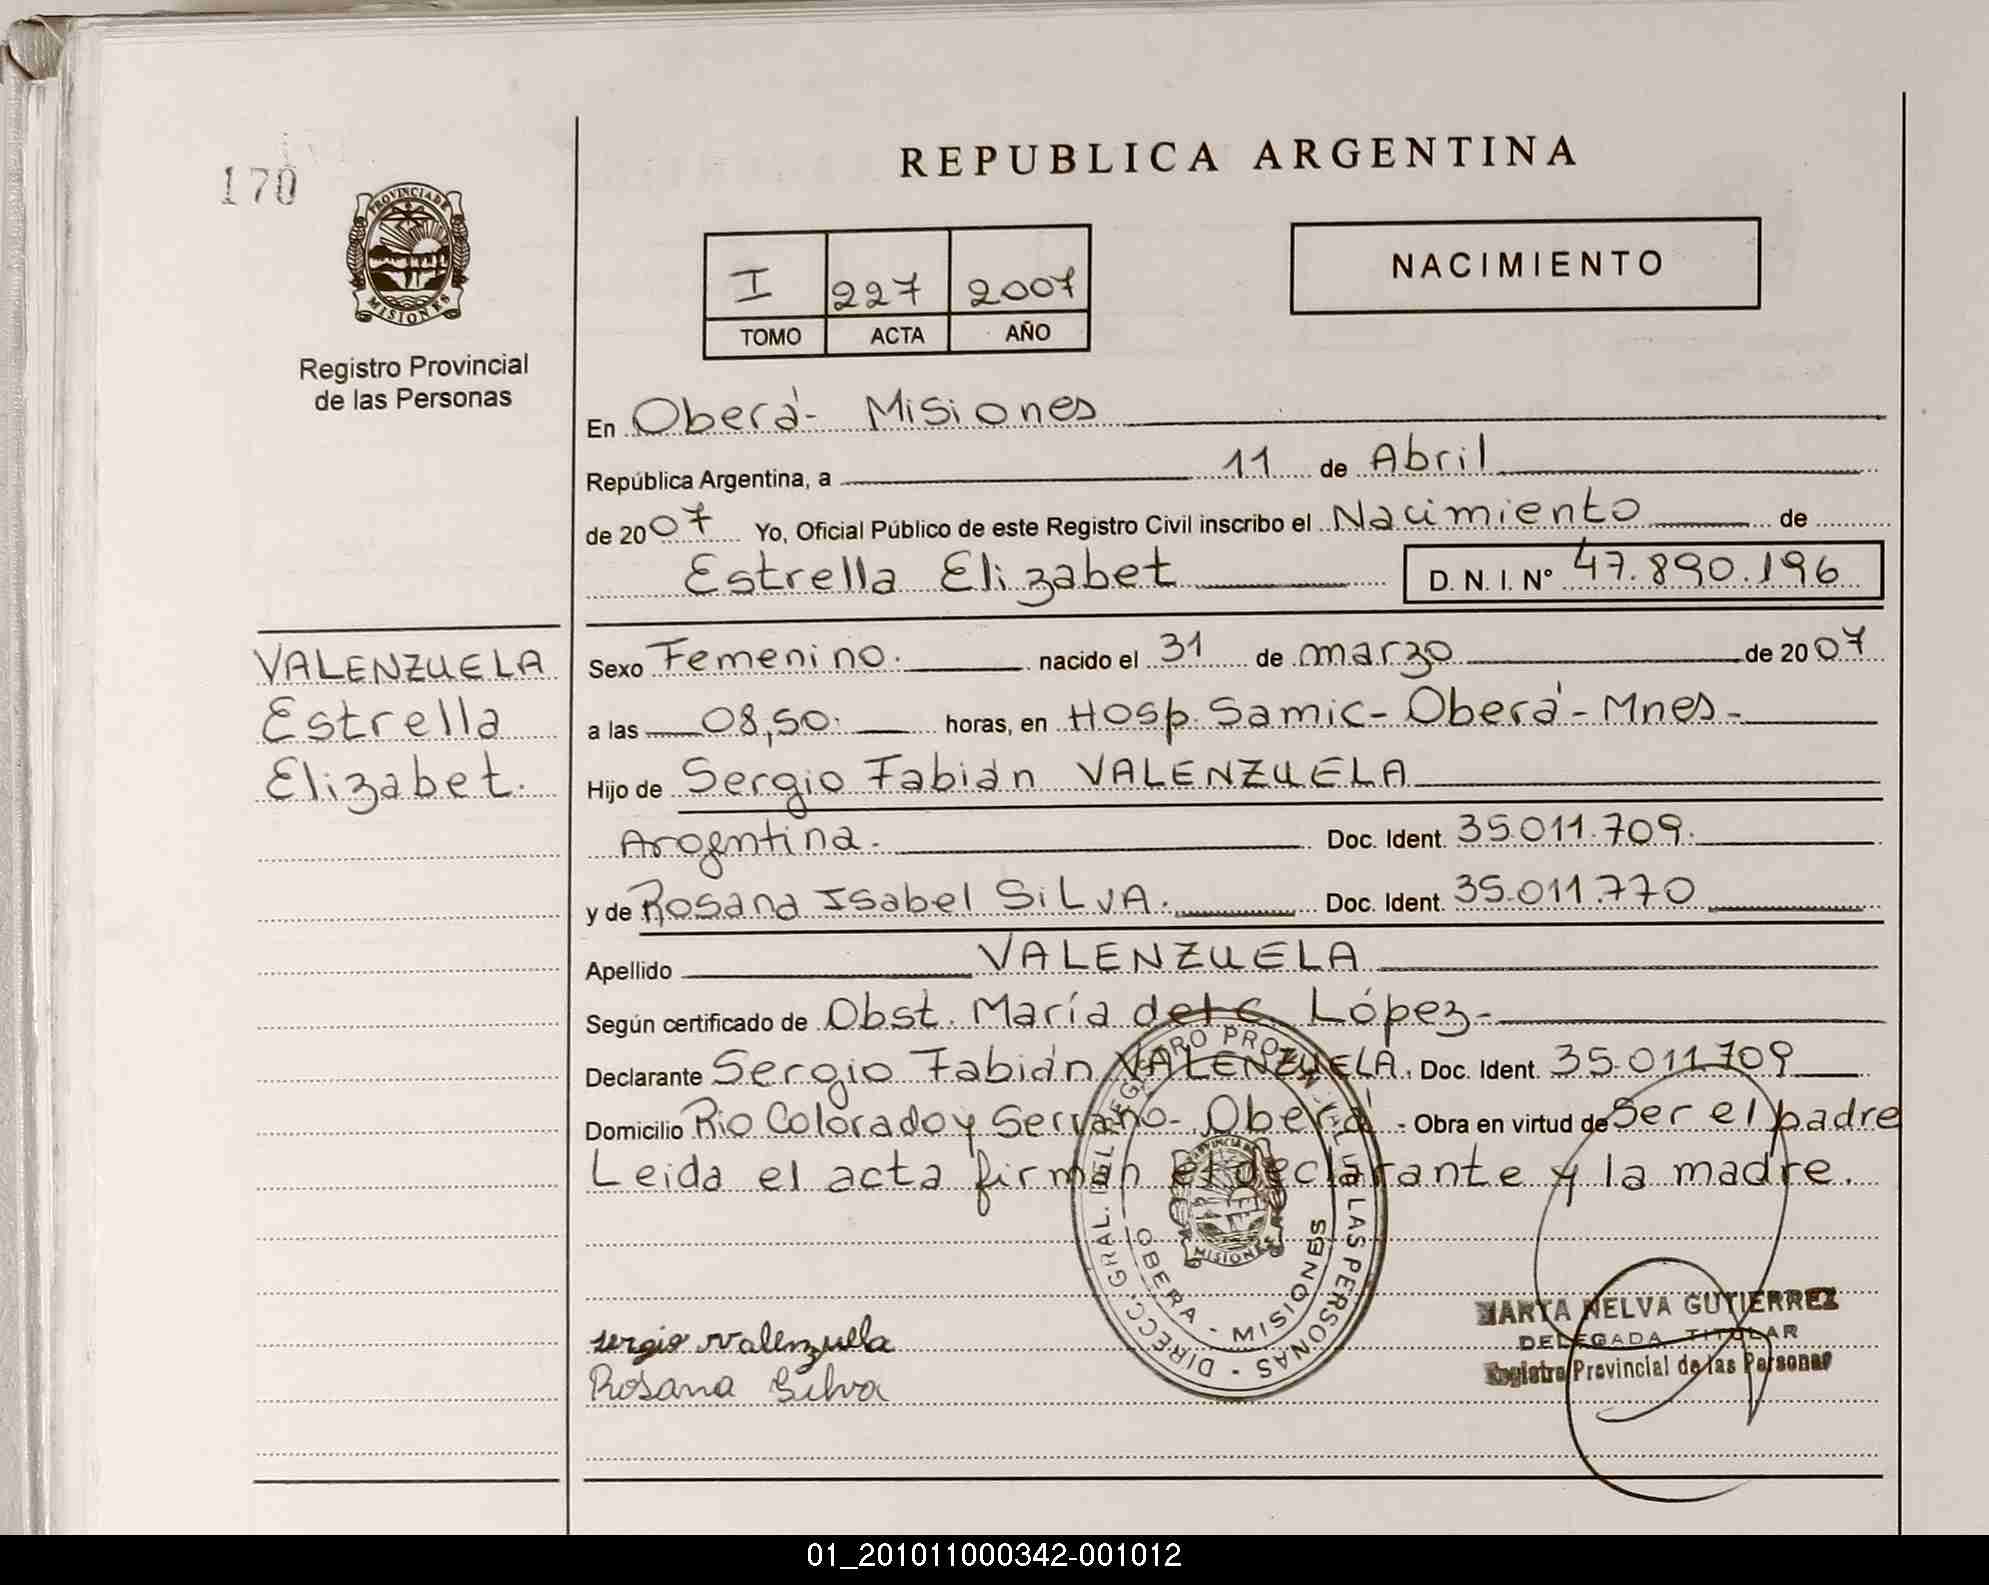 170
PROVINCIA DE
MISIONES
Registro Provincial
de las Personas
REPUBLICA ARGENTINA
I 227 2007
TOMO ACTA AÑO
NACIMIENTO
En Oberá- Misiones
República Argentina, a 11 de Abril
de 2007 Yo, Oficial Público de este Registro Civil inscribo el Nacimiento de
Estrella Elizabet D. N. I. N° 47.890.196
VALENZUELA
Estrella
Elizabet.
Sexo Femenino. nacido el 31 de marzo de 2007
a las 08,50. horas, en Hosp. Samic- Oberá- Mnes-
Hijo de Sergio Fabián VALENZUELA
Arogntina. Doc. Ident. 35.011.709.
y de Rosana Isabel SiLVA. Doc. Ident. 35.011.770
Apellido VALENZUELA
Según certificado de Obst. María del C. López-
Declarante Sergio Fabián VALENZUELA. Doc. Ident. 35.011.709
Domicilio Rio Colorado y Serrano- Oberá - Obra en virtud de Ser el padre
Leida el acta firman el declarante y la madre.
DIRECC. GRAL. DEL REGISTRO PROVINCIAL DE LAS PERSONAS -
OBERA - MISIONES
PROVINCIA DE
MISIONES
MARTA NELVA GUTIERREZ
DELEGADA TITULAR
Registro Provincial de las Personas
sergio valenzuela
Rosana Silva
01_201011000342-001012